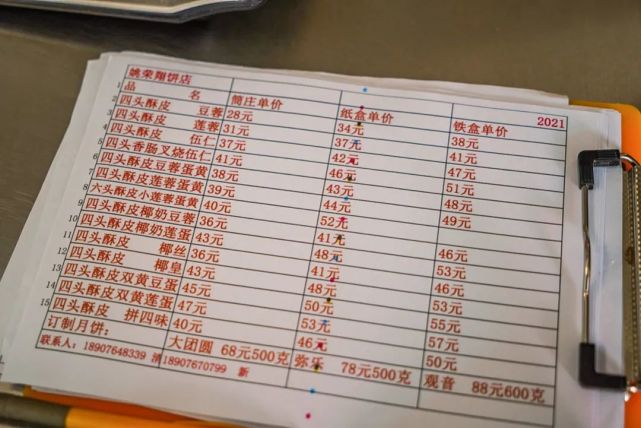 姚荣翔饼店 2021
1 品 名 简庄单价 纸盒单价 铁盒单价
2 四头酥皮 豆蓉 28元 34元 38元
3 四头酥皮 莲蓉 31元 37元 41元
4 四头酥皮 伍仁 37元 42元 47元
5 四头香肠叉烧伍仁 41元 46元 51元
6 四头酥皮豆蓉蛋黄 38元 43元 48元
7 四头酥皮莲蓉蛋黄 39元 44元 49元
8 六头酥皮小莲蓉蛋黄 40元 52元
9 四头酥皮椰奶豆蓉 36元 41元 46元
10 四头酥皮椰奶莲蛋 43元 48元 53元
11 四头酥皮 椰丝 36元 41元 46元
12 四头酥皮 椰皇 43元 48元 53元
13 四头酥皮双黄豆蛋 45元 50元 55元
14 四头酥皮双黄莲蛋 47元 53元 57元
15 四头酥皮 拼四味 40元 46元 50元
订制月饼： 大团圆 68元500克 弥乐 78元500克 观音 88元600克
联系人：18907648339 清18907670799 新